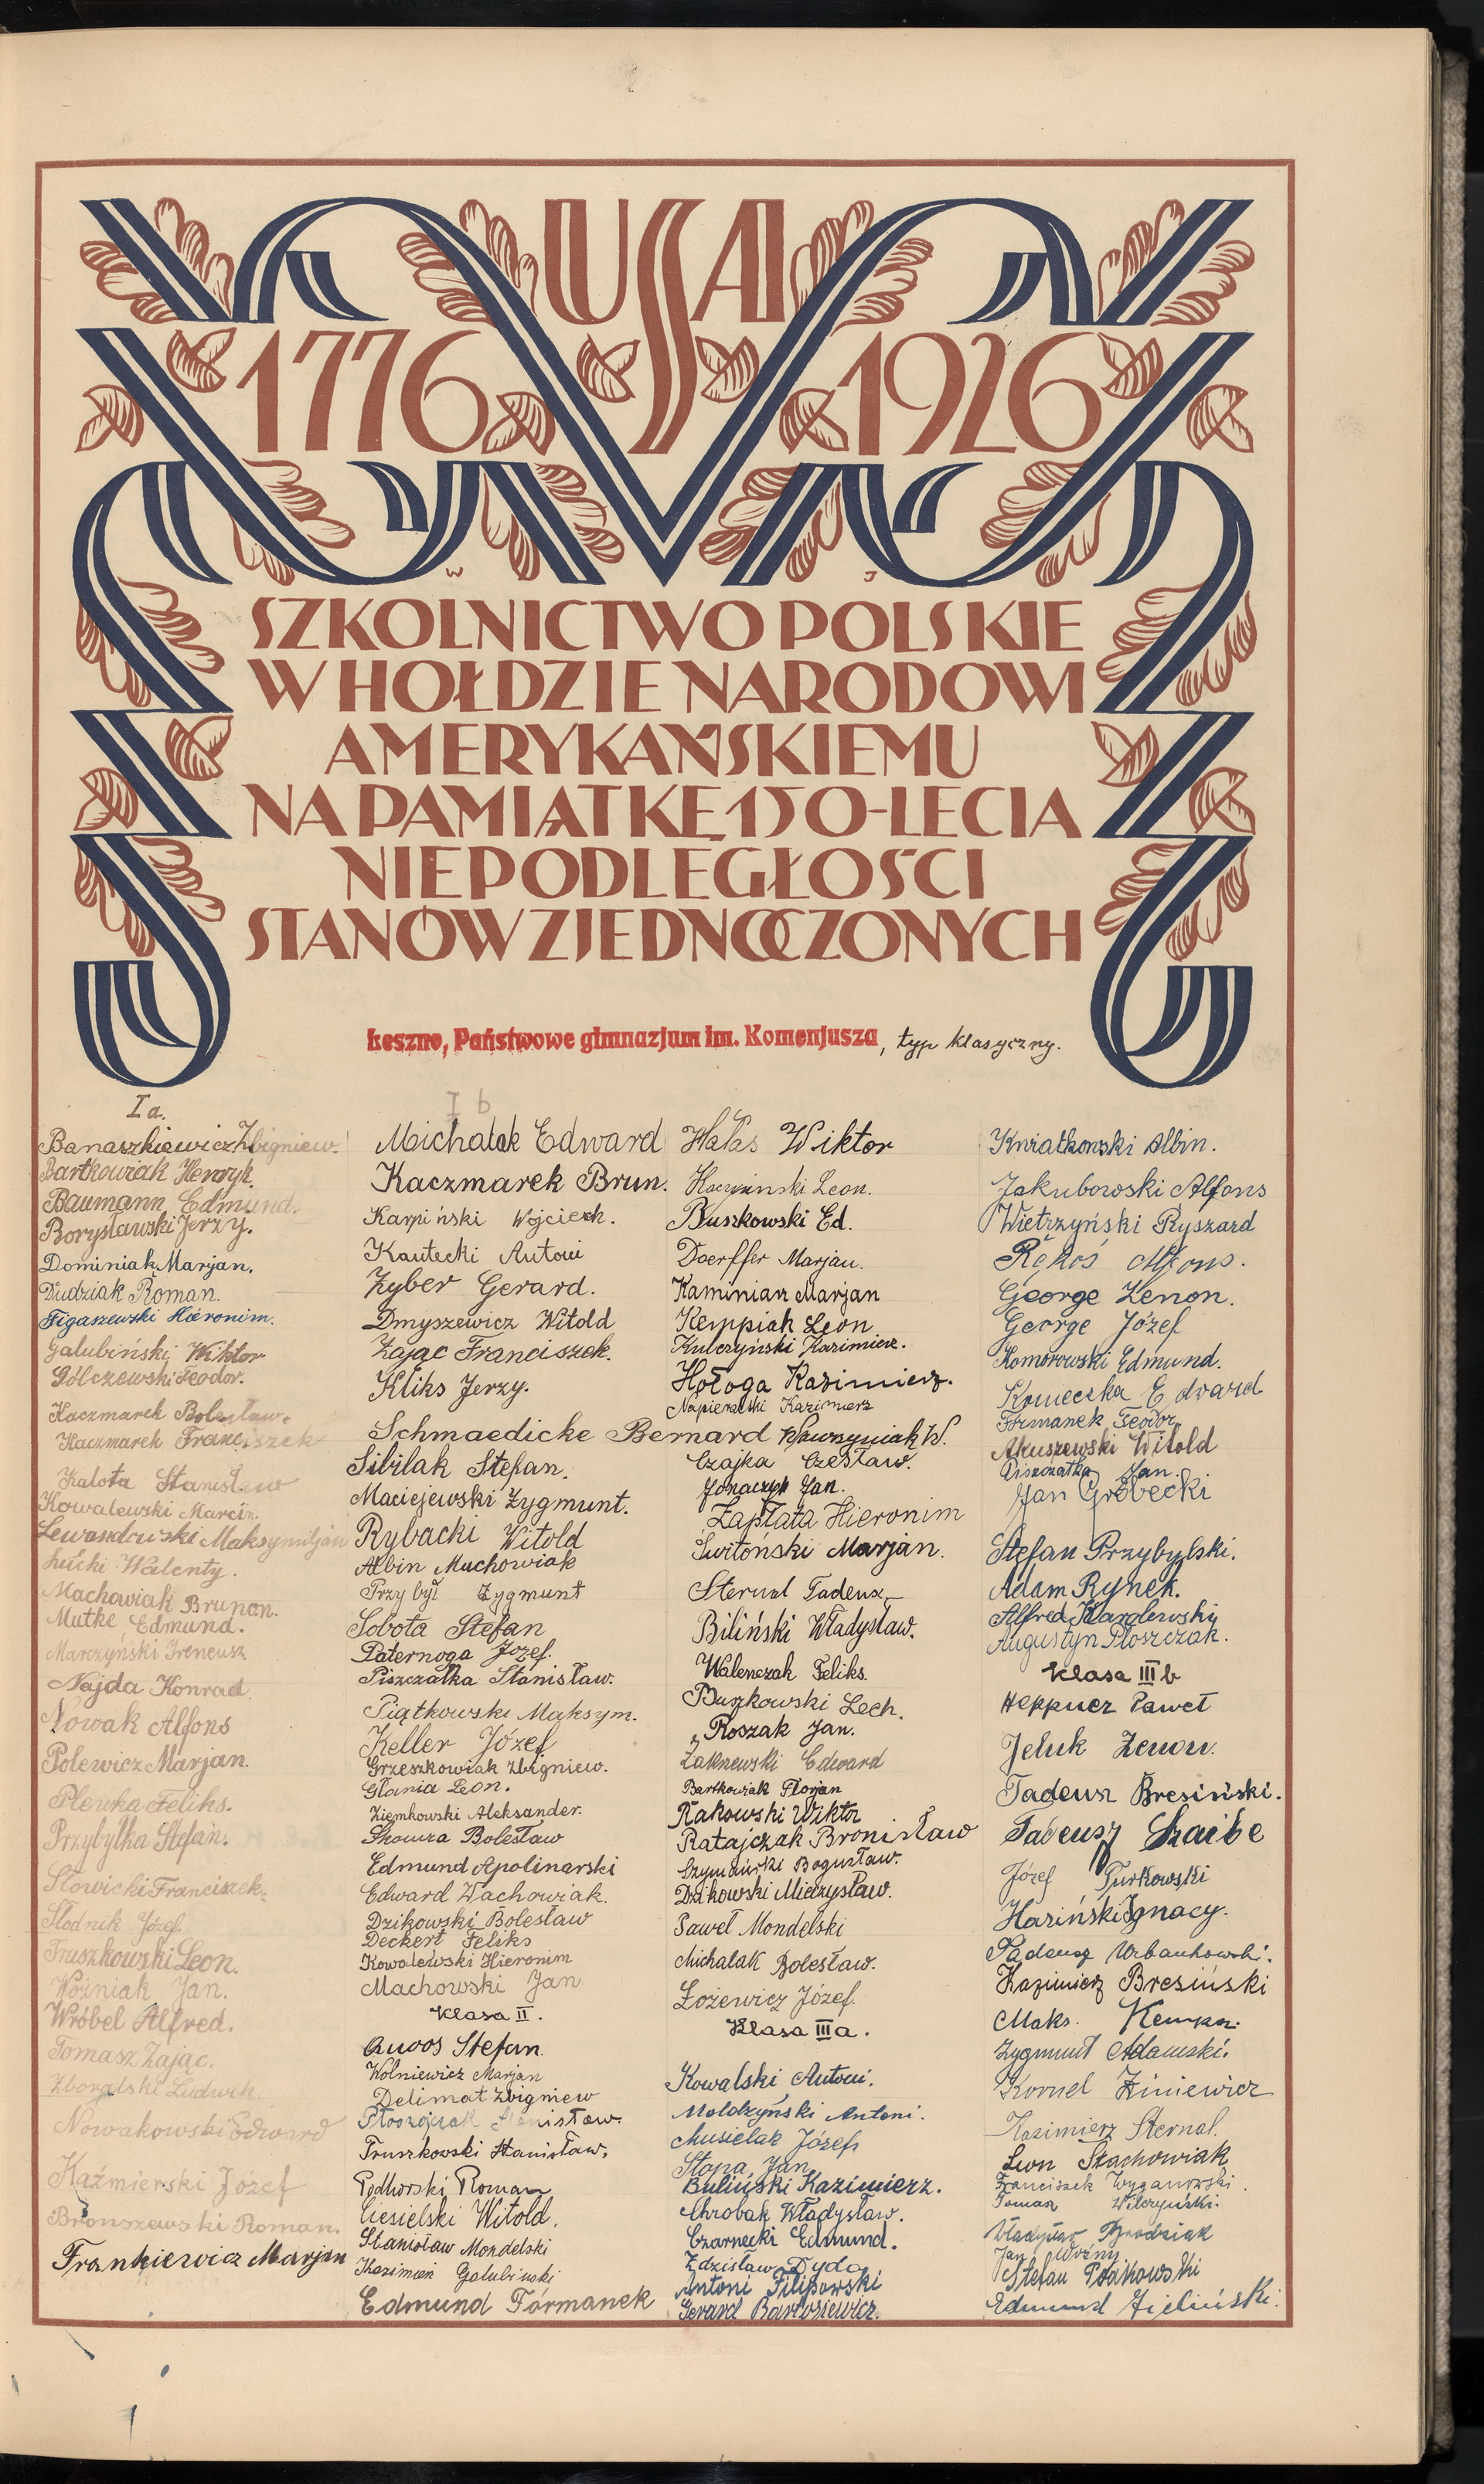 USA
1776 1926
SZKOLNICTWO POLSKIE
W HOŁDZIE NARODOWI
AMERYKAŃSKIEMU
NA PAMIĄTKĘ 150-LECIA
NIEPODLEGŁOŚCI
STANÓW ZJEDNOCZONYCH
Leszno, Państwowe gimnazjum im. Komenjusza, typ klasyczny.
I a.
Banaszkiewicz Zbigniew.
Bartkowiak Henryk.
Baumann Edmund.
Borysławski Jerzy.
Dominiak Marjan.
Dudziak Roman.
Figaszewski Hieronim.
Galubiński Wiktor
Gólczewski Teodor.
Kaczmarek Bolesław.
Kaczmarek Franciszek
Kalota Stanisław
Kowalewski Marcin
Lewandowski Maksymiljan
Łucki Walenty.
Machowiak Brunon.
Mutke Edmund.
Marczyński Ireneusz
Najda Konrad.
Nowak Alfons
Polewicz Marjan.
Plewka Feliks.
Przybylka Stefan.
Słowicki Franciszek.
Słodnik Józef.
Truszkowski Leon.
Woźniak Jan.
Wróbel Alfred.
Tomasz Zając.
Zboralski Ludwik.
Nowakowski Edward
Kaźmierski Józef
Bronszewski Roman.
Frankiewicz Marjan
I b
Michalak Edward
Kaczmarek Brun.
Karpiński Wojciech.
Kautecki Antoni
Zyber Gerard.
Dmyszewicz Witold
Zając Franciszek.
Kliks Jerzy.
Schmaedicke Bernard
Sibilak Stefan.
Maciejewski Zygmunt.
Rybacki Witold
Albin Muchowiak
Przybył Zygmunt
Sobota Stefan
Paternoga Józef.
Piszczałka Stanisław.
Piątkowski Maksym.
Keller Józef
Grzeszkowiak Zbigniew.
Glania Leon.
Ziemkowski Aleksander.
Skowra Bolesław
Edmund Apolinarski
Edward Wachowiak.
Dzikowski Bolesław
Deckert Feliks
Kowalewski Hieronim
Machowski Jan
Klasa II.
Quoos Stefan
Wolniewicz Marjan
Delimat Zbigniew
Płoszajczak Stanisław.
Truszkowski Stanisław.
Podhorski Roman
Ciesielski Witold.
Stanisław Mondelski
Kazimierz Galubiński
Edmund Fórmanek
Hałas Wiktor
Kaczyński Leon.
Buszkowski Ed.
Doerffer Marjan.
Kaminiarz Marjan
Kemppiak Leon
Kulczyński Kazimierz.
Hołoga Kazimierz.
Napieralski Kazimierz
Wawrzyniak W.
Czajka Czesław.
Jonaczyk Jan.
Zapłata Hieronim
Świtoński Marjan.
Sternal Tadeusz
Biliński Władysław.
Walenczak Feliks.
Buszkowski Lech.
Roszak Jan.
Zakrzewski Edward
Bartkowiak Florjan
Rakowski Wiktor
Ratajczak Bronisław
Szymański Bogusław.
Dzikowski Mieczysław.
Paweł Mondelski
Michalak Bolesław.
Łożewicz Józef.
Klasa III a.
Kowalski Antoni.
Mołdzyński Antoni.
Musielak Józef
Stopa Jan
Buliński Kazimierz.
Chrobak Władysław.
Czarnecki Edmund.
Zdzisław Dyda
Antoni Filipowski
Gerard Bartosiewicz.
Kwiatkowski Albin.
Jakubowski Alfons
Wietrzyński Ryszard
Rękoś Alfons.
George Zenon.
George Józef
Komorowski Edmund.
Konieczka Edward
Formanek Teodor
Akuszewski Witold
Piszczatka Jan.
Jan Grobecki
Stefan Przybylski.
Adam Rynek.
Alfred Karolewski
Augustyn Płoszczak.
Klasa III b
Heppner Paweł
Jeluk Zenon.
Tadeusz Bresiński.
Tadeusz Szaibe
Józef Turkowski
Haziński Ignacy.
Tadeusz Urbankowski.
Kazimierz Bresiński
Maks. Kempa.
Zygmunt Adamski.
Kornel Ziniewicz
Kazimierz Sternal.
Leon Stachowiak
Franciszek Wyganowski.
Tomasz Wilczyński.
Władysław Brodziak
Jan Woźny
Stefan Ptakowski
Edmund Zieliński.